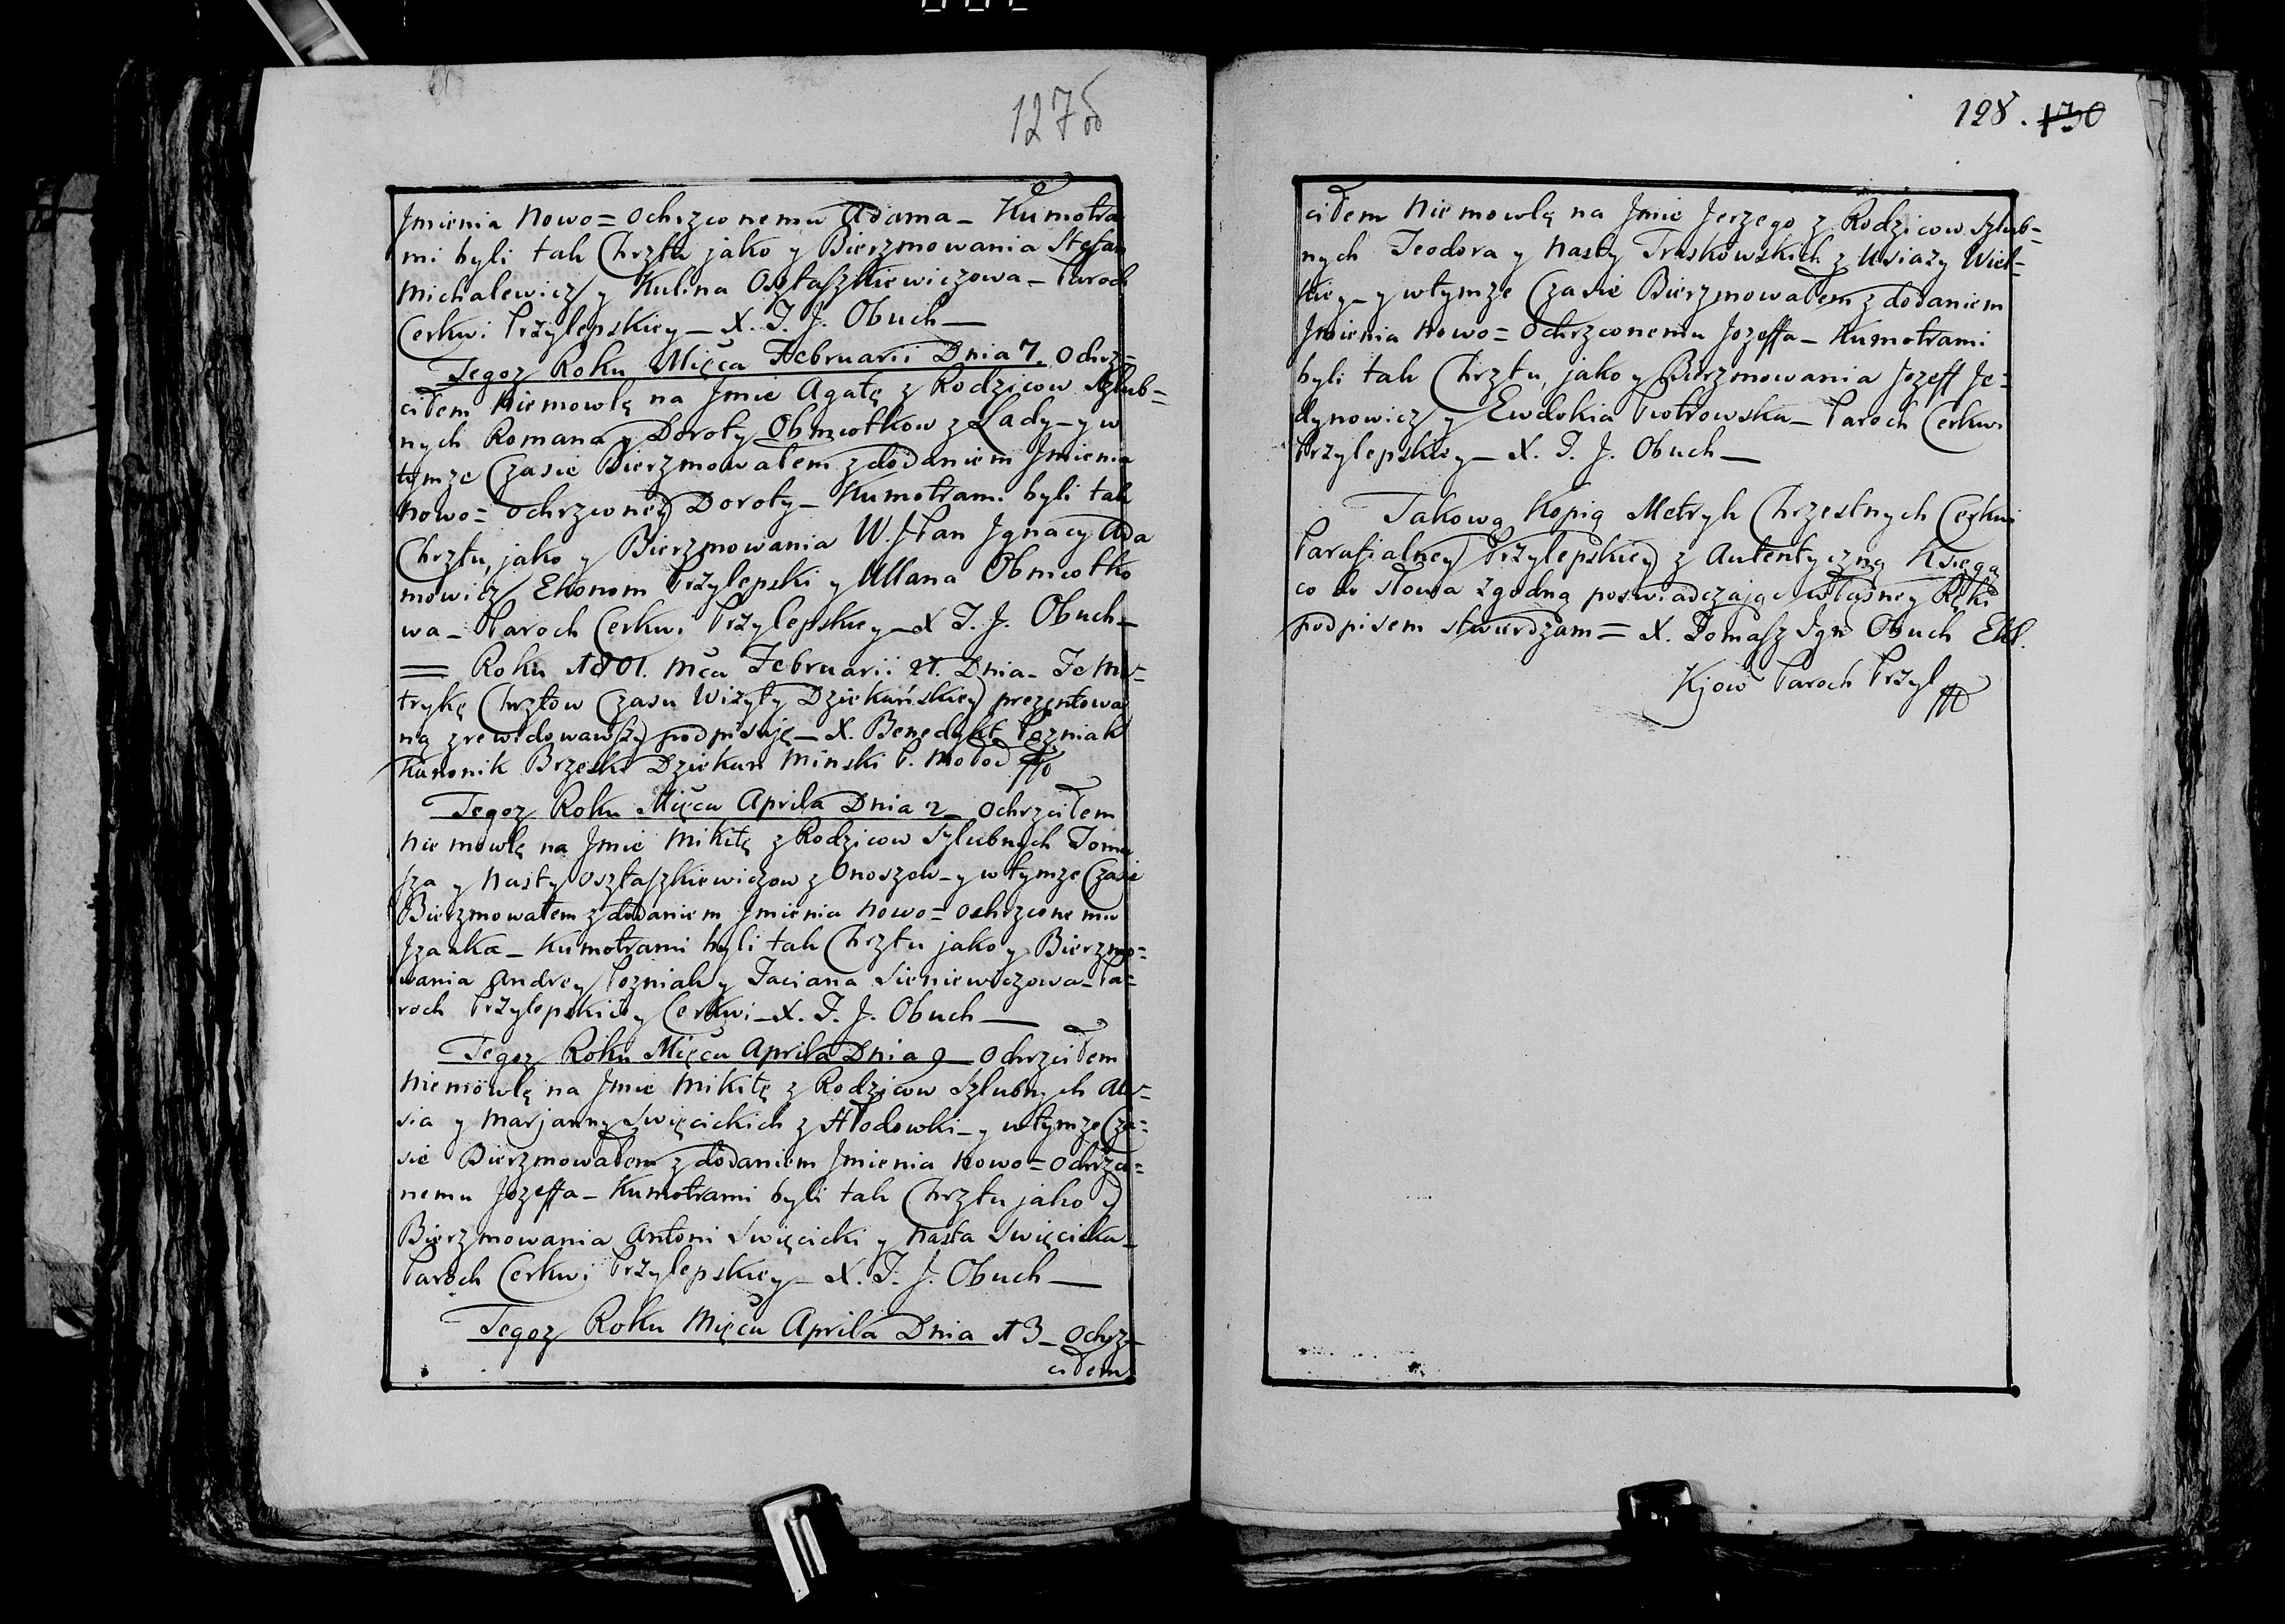 127об
Jmienia Nowo= ochrzconemu Adama_ Kumotra
mi byli tak Chrztu jako y Bierzmowania Stefan
Michalewicz y Kulina Osztaszkiewiczowa_ Paroch
Cerkwi Przylepskiey_ X. T. J. Obuch_
Tegoz Roku Mięca Februarii Dnia 7. ochrz=
ciłem Niemowlę na Jmie Agatę z Rodzicow Szlub=
nych Romana y Doroty Obmiotkow z Lady_ y w
tymze Czasie Bierzmowałem z dodaniem Jmienia
Nowo= ochrzconey Doroty_ Kumotrami byli tak
Chrztu, jako y Bierzmowania W. J Pan Jgnacy Ada
mowicz Ekonom Przylepski y Ullana Obmiotko
wa_ Paroch Cerkwi Przylepskiey_ X T. J. Obuch_
= Roku 1801. Mca Februarii 21. Dnia_ Te Me=
trykę Chrztow Czasu Wizyty Dziekańskiey prezentowa
ną zrewidowawszy podpisuję_ X. Benedykt Pozniak
Kanonik Brzeski Dziekan Minski P. Mołod
Tegoz Roku Mięca Aprila Dnia 2_ ochrzciłem
Niemowlę na Jmie Mikitę z Rodzicow Szlubnych Toma
sza y Nasty Osztaszkiewiczow z Onoszek_ y w tymze Czasie
Bierzmowałem z dodaniem Jmienia Nowo= ochrzconemu
Jzaaka_ Kumotrami byli tak Chrztu jako y Bierzmo=
wania Andrey Pozniak y Taciana Sieniewiczowa_ Pa=
roch Przylepskiey Cerkwi_ X. T. J. Obuch_
Tegoz Roku Mięca Aprila Dnia 9_ ochrzciłem
Niemowlę na Jmie Mikitę z Rodzicow Szlubnych Ale=
sia y Marjanny Swięcickich z Hłodowki_ y w tymze Cza=
sie Bierzmowałem z dodaniem Jmienia Nowo= ochrzco=
nemu Jozeffa_ Kumotrami byli tak Chrztu jako y
Bierzmowania Antoni Swięcicki y Nasta Swięcicka_
Paroch Cerkwi Przylepskiey_ X. T. J. Obuch_
Tegoz Roku Mięca Aprila Dnia 13_ ochrz_
ciłem
128. 130
ciłem Niemowlę na Jmie Jerzego z Rodzicow Szlub=
nych Teodora y Nasty Truskowskich z Usiazy Wiel=
kiey_ y w tymze Czasie Bierzmowałem z dodaniem
Jmienia Nowo= ochrzconemu Jozeffa_ Kumotrami
byli tak Chrztu, jako y Bierzmowania Jozeff Je=
dynowicz y Ewdokia Piotrowska_ Paroch Cerkwi
Przylepskiey_ X. T. J. Obuch_
Takową Kopią Metryk Chrzestnych Cerkwi
Parafialney Przylepskiey z Autentyczną Księgą
co do słowa zgodną poswiadczając własney Ręki
podpisem stwierdzam= X. Tomasz Jgn Obuch Ekl.
Kjow Paroch Przyl